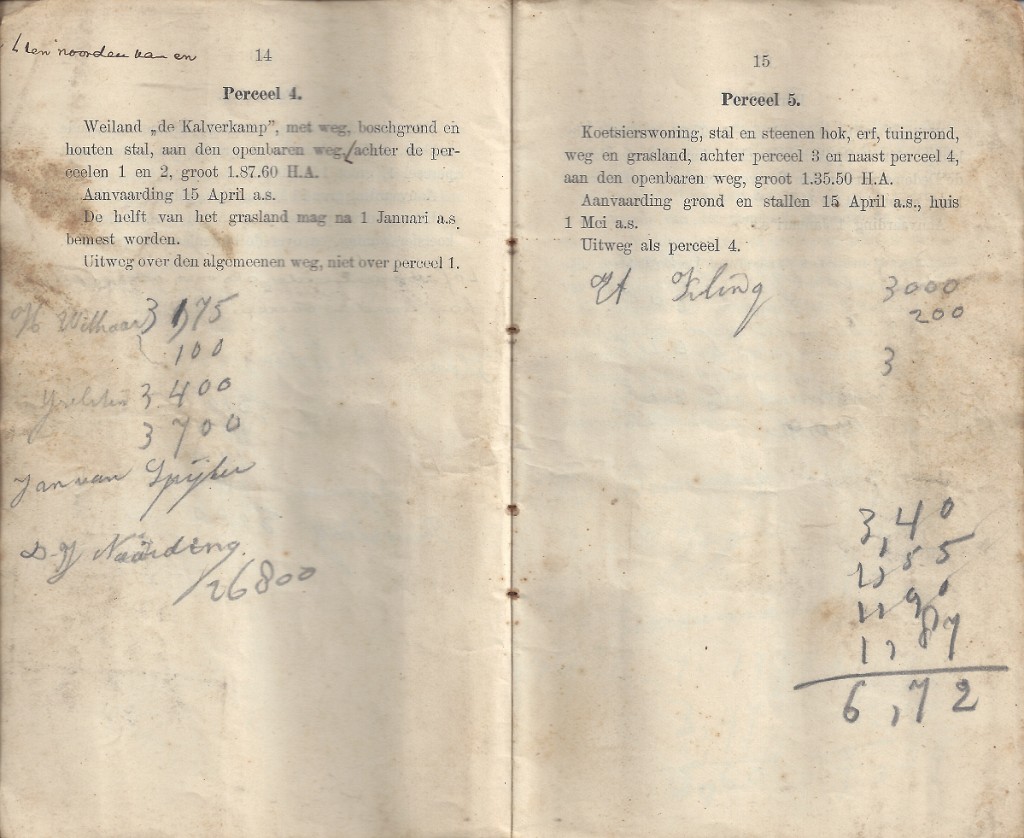 ten noorden van en
14
Perceel 4.
Weiland „de Kalverkamp”, met weg, boschgrond en
houten stal, aan den openbaren weg, achter de per-
ceelen 1 en 2, groot 1.87.60 H.A.
Aanvaarding 15 April a.s.
De helft van het grasland mag na 1 Januari a.s.
bemest worden.
Uitweg over den algemeenen weg, niet over perceel 1.
3175
100
3400
3700
Jan van Spijker
D. J Naarding
26800
15
Perceel 5.
Koetsierswoning, stal en steenen hok, erf, tuingrond,
weg en grasland, achter perceel 3 en naast perceel 4,
aan den openbaren weg, groot 1.35.50 H.A.
Aanvaarding grond en stallen 15 April a.s., huis
1 Mei a.s.
Uitweg als perceel 4.
3000
200
3
3,40
6,72